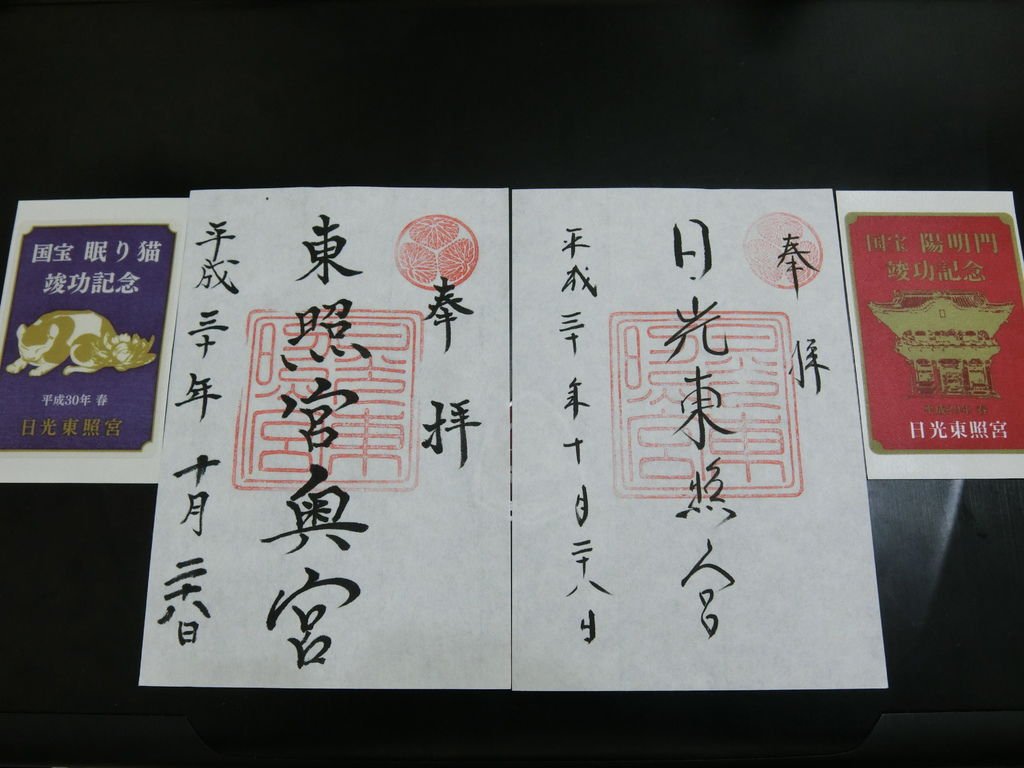 国宝 眠り猫
竣功記念
平成30年 春
日光東照宮
奉拝
東照宮奥宮
平成三十年十月二十八日
奉拝
日光東照宮
平成三十年十月二十八日
国宝 陽明門
竣功記念
日光東照宮